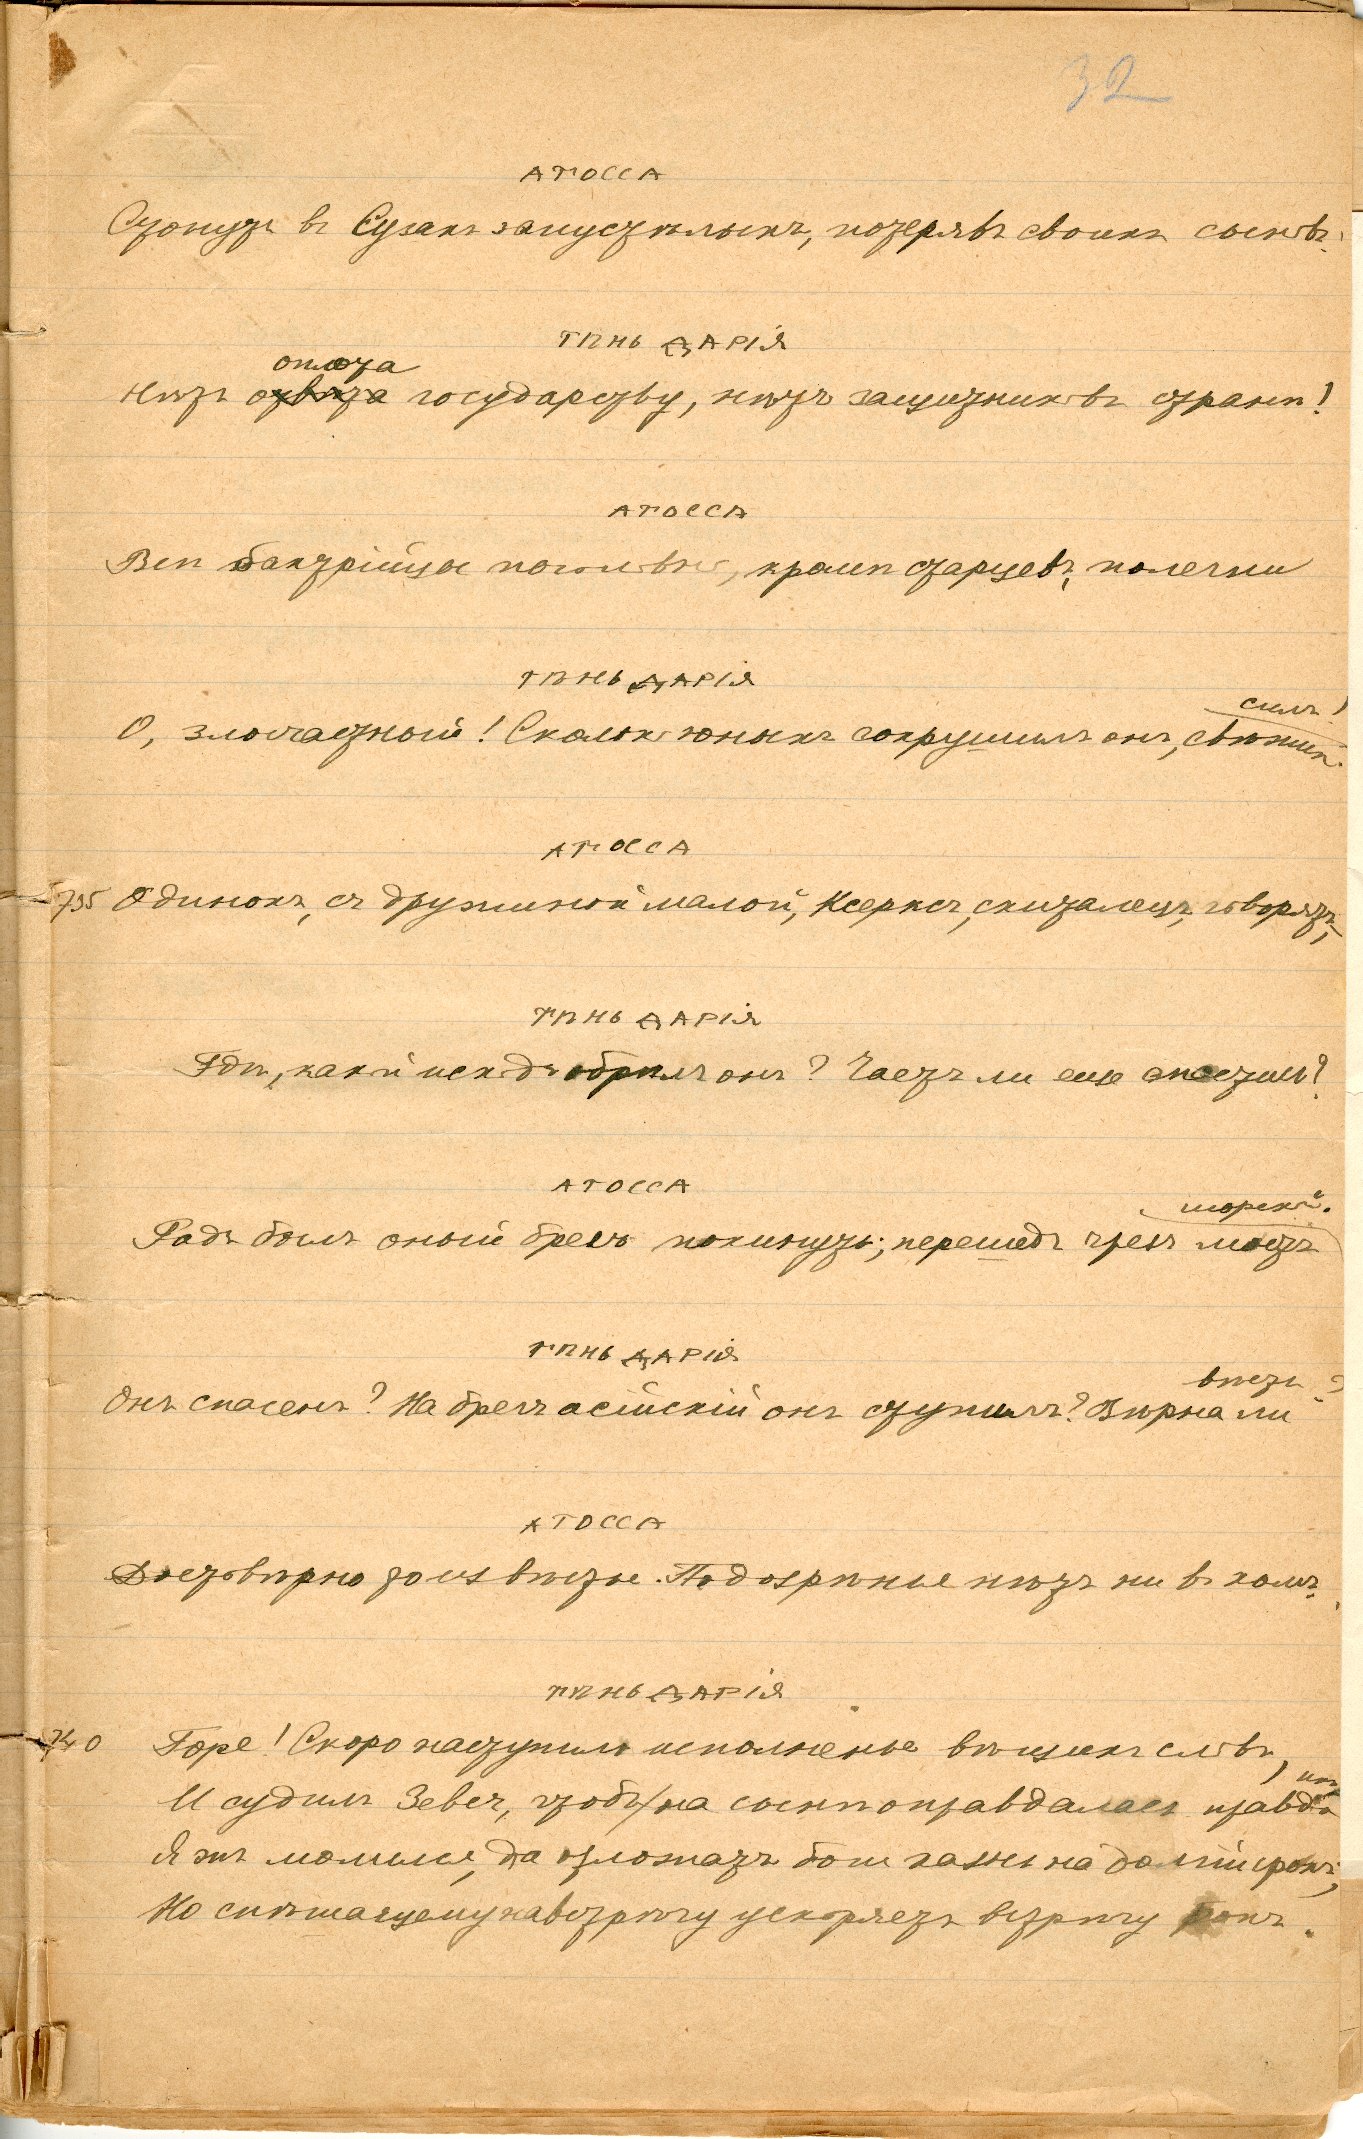 32
АТОССА
Стонутъ въ Сузахъ запустѣлыхъ, потерявъ своихъ сыновъ.
ТѢНЬ ДАРІЯ
оплота
Нѣтъ отвѣта государству, нѣтъ защитниковъ странѣ!
АТОССА
Всѣ бактрійцы поголовно, кромѣ старцевъ, полегли
ТѢНЬ ДАРІЯ
силъ!
О, злосчастный! Сколько юныхъ сокрушилъ онъ, свѣжихъ
АТОССА
735 Одинокъ, съ дружиной малой, Ксерксъ, скиталецъ, говорятъ,
ТѢНЬ ДАРІЯ
Гдѣ, какой исходъ обрѣлъ онъ? Чаетъ ли еще спастись?
АТОССА
морской.
Радъ былъ оный брегъ покинуть, перешедъ чрезъ мостъ
ТѢНЬ ДАРІЯ
вѣсть?
Онъ спасенъ? На брегъ асійскій онъ ступилъ? Вѣрна ли
АТОССА
Достовѣрно то извѣстье. Подозрѣнье нѣтъ ни въ комъ.
ТѢНЬ ДАРІЯ
740 Горе! Скоро наступило исполненье вѣщихъ словъ,
И судилъ Зевсъ, чтобъ на сынѣ оправдалась правда
Я жъ молилъ, да отложатъ боги казнь на долгій срокъ;
Но спѣшащему навстрѣчу ускоряетъ встрѣчу богъ.